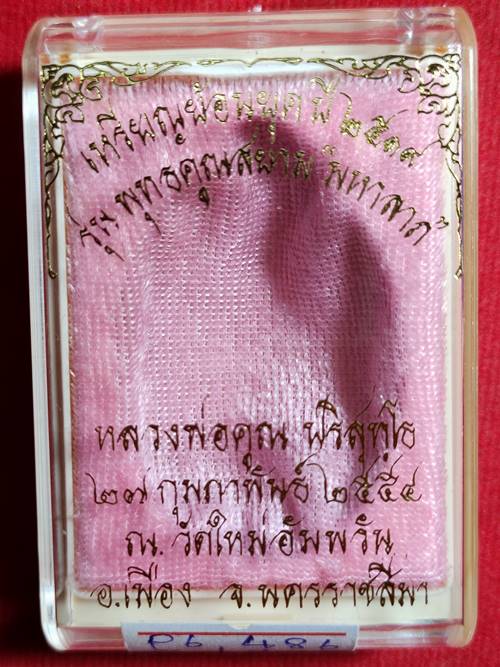 เหรียญย้อนยุค ปี ๒๕๑๗
รุ่น พุทธคูณสยาม "มหาลาภ"
หลวงพ่อคูณ ปริสุทฺโธ
๒๗ กุมภาพันธ์ ๒๕๕๔
ณ. วัดใหม่อัมพวัน
อ.เมือง จ.นครราชสีมา